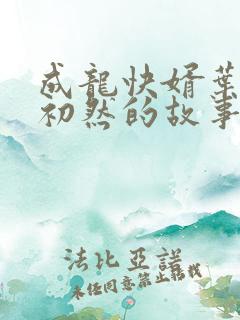 成龍快婿葉
初然的故事
法比亞諾
未經同意禁止轉載